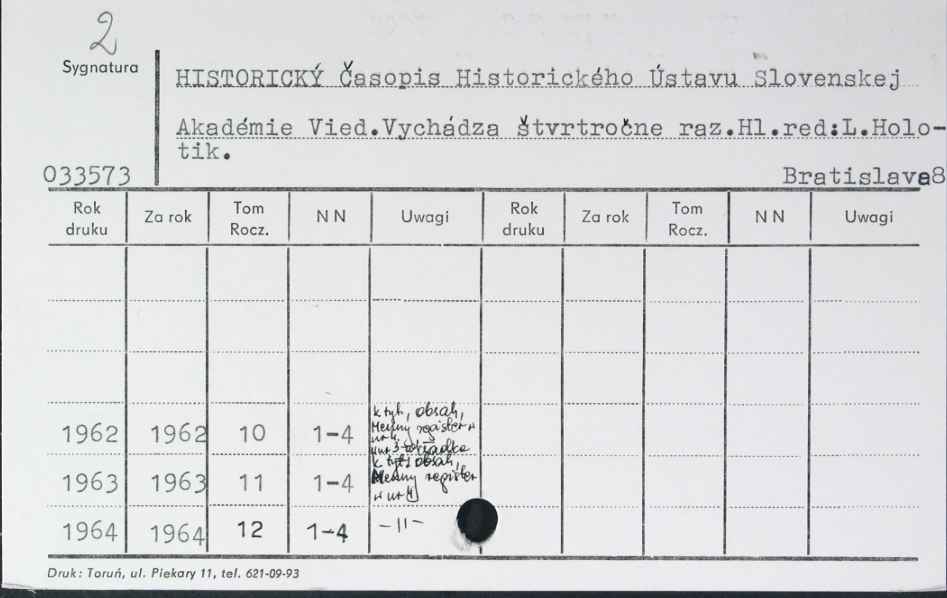 2
Sygnatura
HISTORICKÝ Časopis Historického Ústavu Slovenskej
Akadémie Vied.Vychádza štvrtročne raz.Hl.red:L.Holo-
tik.
033573
Bratislava8
Rok druku Za rok Tom Rocz. NN Uwagi Rok druku Za rok Tom Rocz. NN Uwagi
k. tyt., obsah,
Menny register w
nr 4
k. tyt. obsah,
1962 1962 10 1-4
Menny register
w nr 4
1963 1963 11 1-4
1964 1964 12 1-4 -11-
Druk: Toruń, ul. Piekary 11, tel. 621-09-93